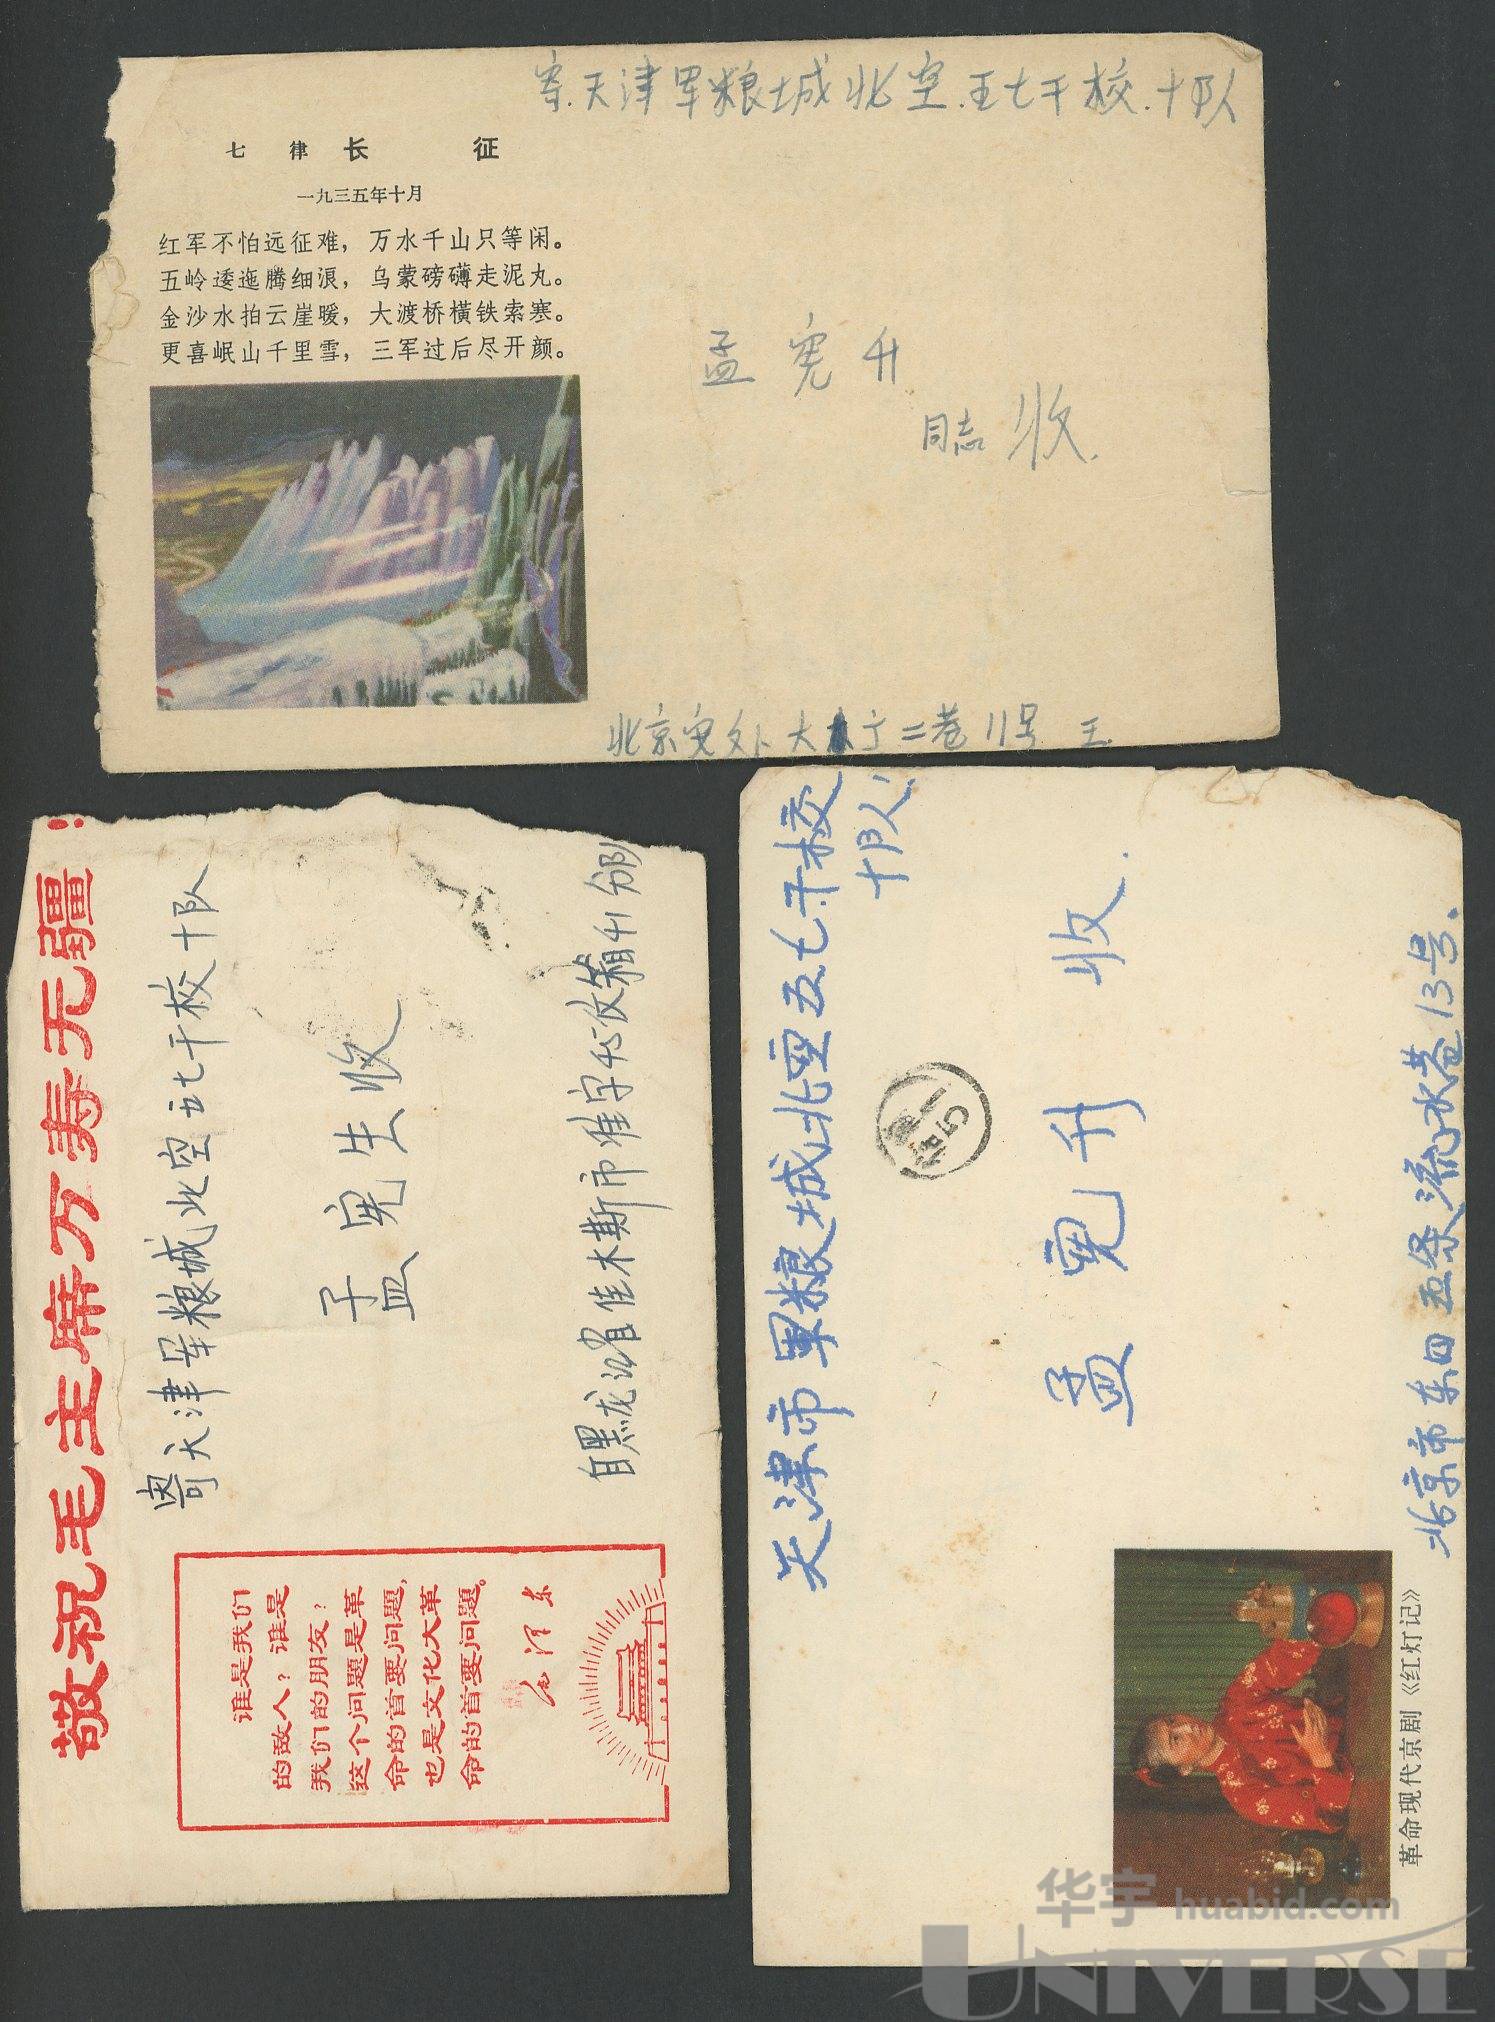 寄.天津军粮城北空.五七干校.十队
七 律 长 征
一九三五年十月
红军不怕远征难，万水千山只等闲。
五岭逶迤腾细浪，乌蒙磅礴走泥丸。
金沙水拍云崖暖，大渡桥横铁索寒。
更喜岷山千里雪，三军过后尽开颜。
孟宪升
同志 收.
北京安外大 二巷11号 王.
敬祝毛主席万寿无疆！
寄天津军粮城北空五七干校十队
孟宪生收
自黑龙江省佳木斯市 字45收箱
谁是我们
的敌人？谁是
我们的朋友？
这个问题是革
命的首要问题，
也是文化大革
命的首要问题。
毛泽东
天津市军粮城北空五七干校
十队.
孟宪升 收.
北京市东四五条流水巷13号.
革命现代京剧《红灯记》
华宇 huabid.com
UNIVERSE